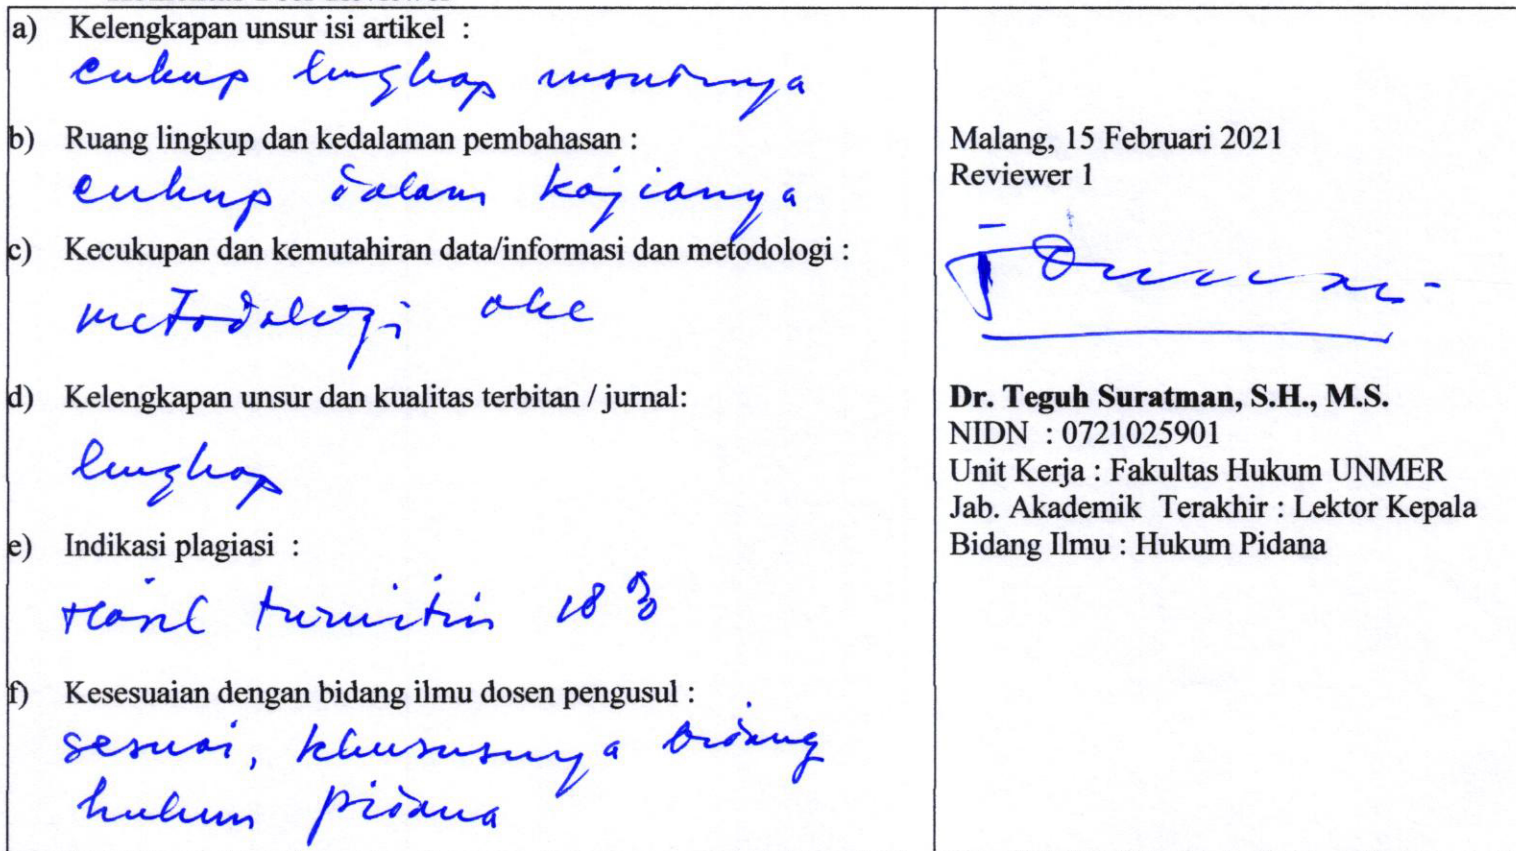 a) Kelengkapan unsur isi artikel :
cukup lengkap unsurnya
b) Ruang lingkup dan kedalaman pembahasan :
cukup dalam kajianya
c) Kecukupan dan kemutahiran data/informasi dan metodologi :
metodologi oke
d) Kelengkapan unsur dan kualitas terbitan / jurnal:
lengkap
e) Indikasi plagiasi :
Hasil turnitin 18 %
f) Kesesuaian dengan bidang ilmu dosen pengusul :
sesuai, khususnya bidang
hukum pidana
Malang, 15 Februari 2021
Reviewer 1
Dr. Teguh Suratman, S.H., M.S.
NIDN : 0721025901
Unit Kerja : Fakultas Hukum UNMER
Jab. Akademik Terakhir : Lektor Kepala
Bidang Ilmu : Hukum Pidana